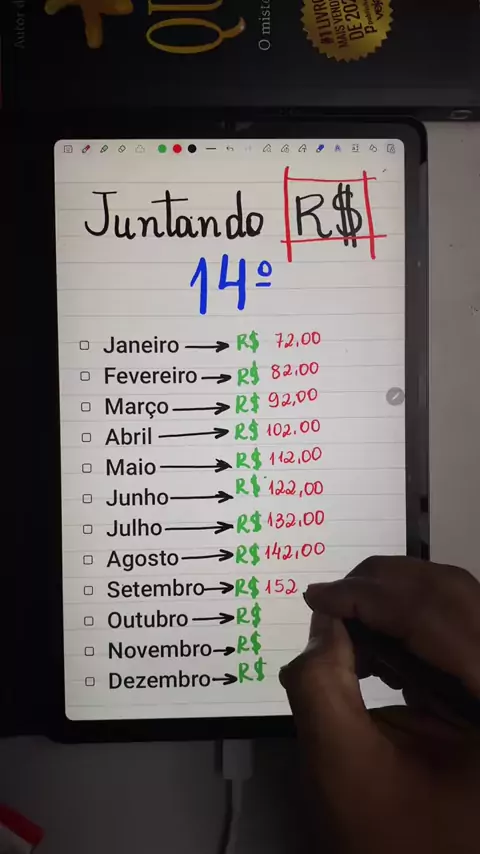 Autor d
QU
O misté
#1 LIVRO
MAIS VENDI
DE 202
veja
Juntando R$
14º
Janeiro → R$ 72,00
Fevereiro → R$ 82,00
Março → R$ 92,00
Abril → R$ 102,00
Maio → R$ 112,00
Junho → R$ 122,00
Julho → R$ 132,00
Agosto → R$ 142,00
Setembro → R$ 152
Outubro → R$
Novembro → R$
Dezembro → R$